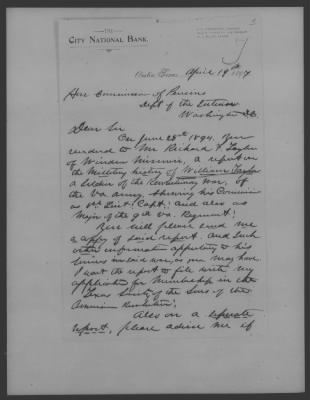 THE
CITY NATIONAL BANK
Austin, Texas, April 19th 1897
Hon Commissioner of Pensions
Dept of the Interior
Washington D.C.
Dear Sir
On June 25th 1894, you
rendered to Mr Richard F. Taylor
of Windsor Missouri, a report on
the Military history of William Taylor
a soldier of the Revolutionary War, of
the Va army, showing his Commission
as 1st Lieut & Capt! and also as
Major of the 9th Va. Regiment!
Now will please send me
a copy of said report, and such
other information appertaining to his
services in said war, as you may have
I want the report to file with my
application for Membership in the
Texas Society of the Sons of the
American Revolution.
Also on a separate
report, please advise me if